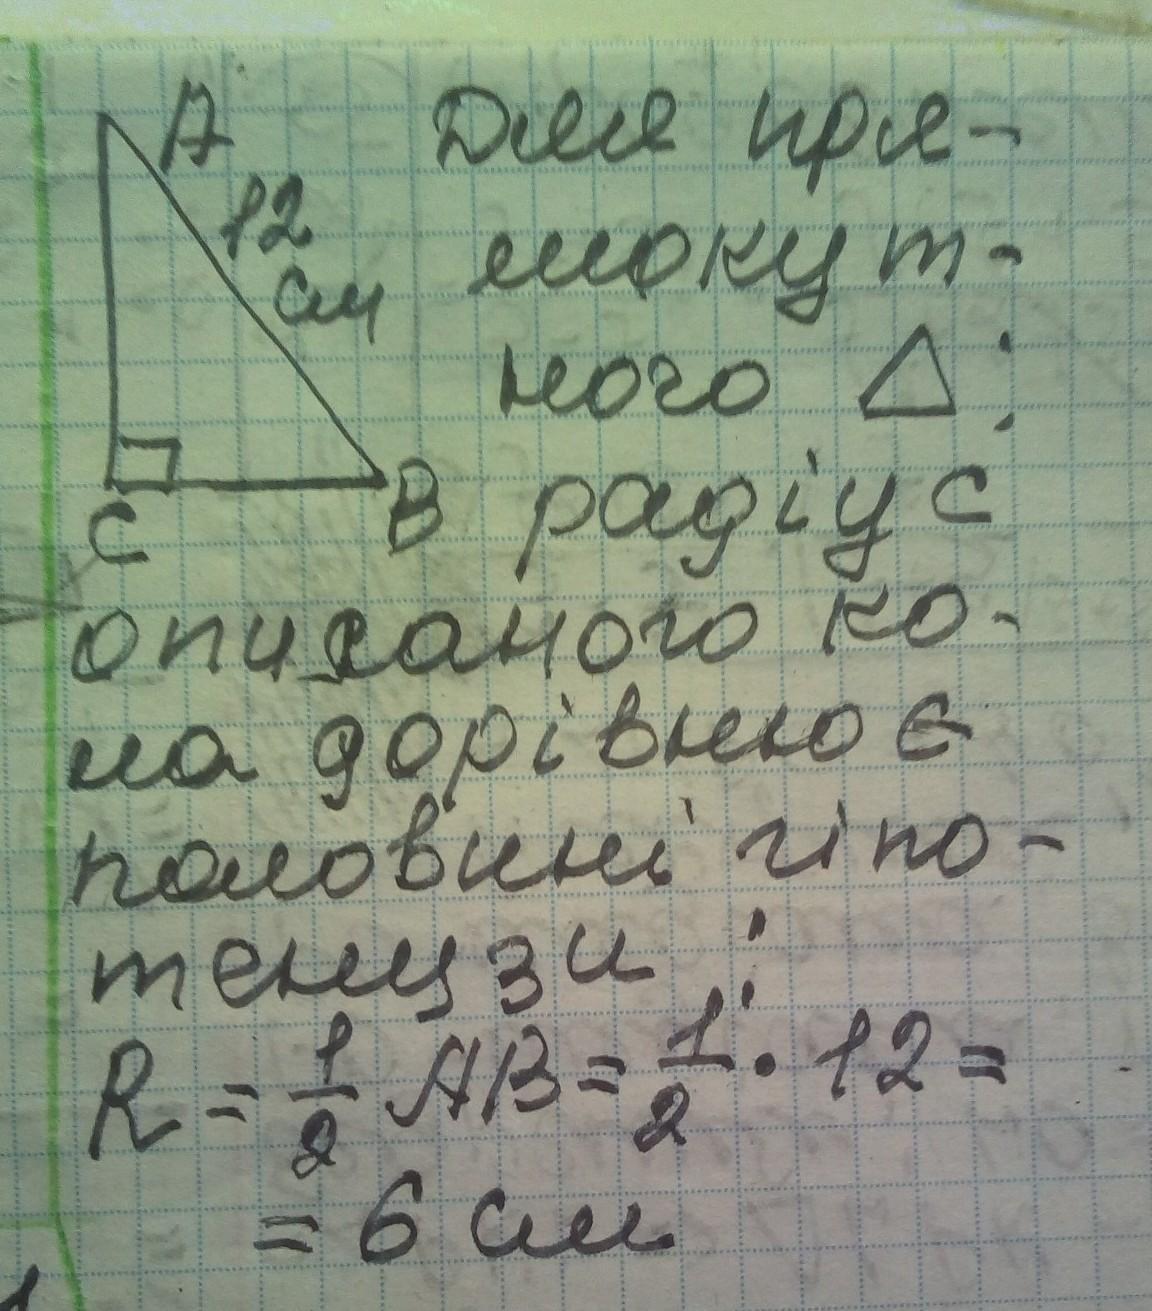 A Для пря-
12 мокут-
см ного △:
C B радіус
описаного ко-
ла дорівнює
половині гіпо-
тенузи:
R = 1/2 AB = 1/2 · 12 =
= 6 см